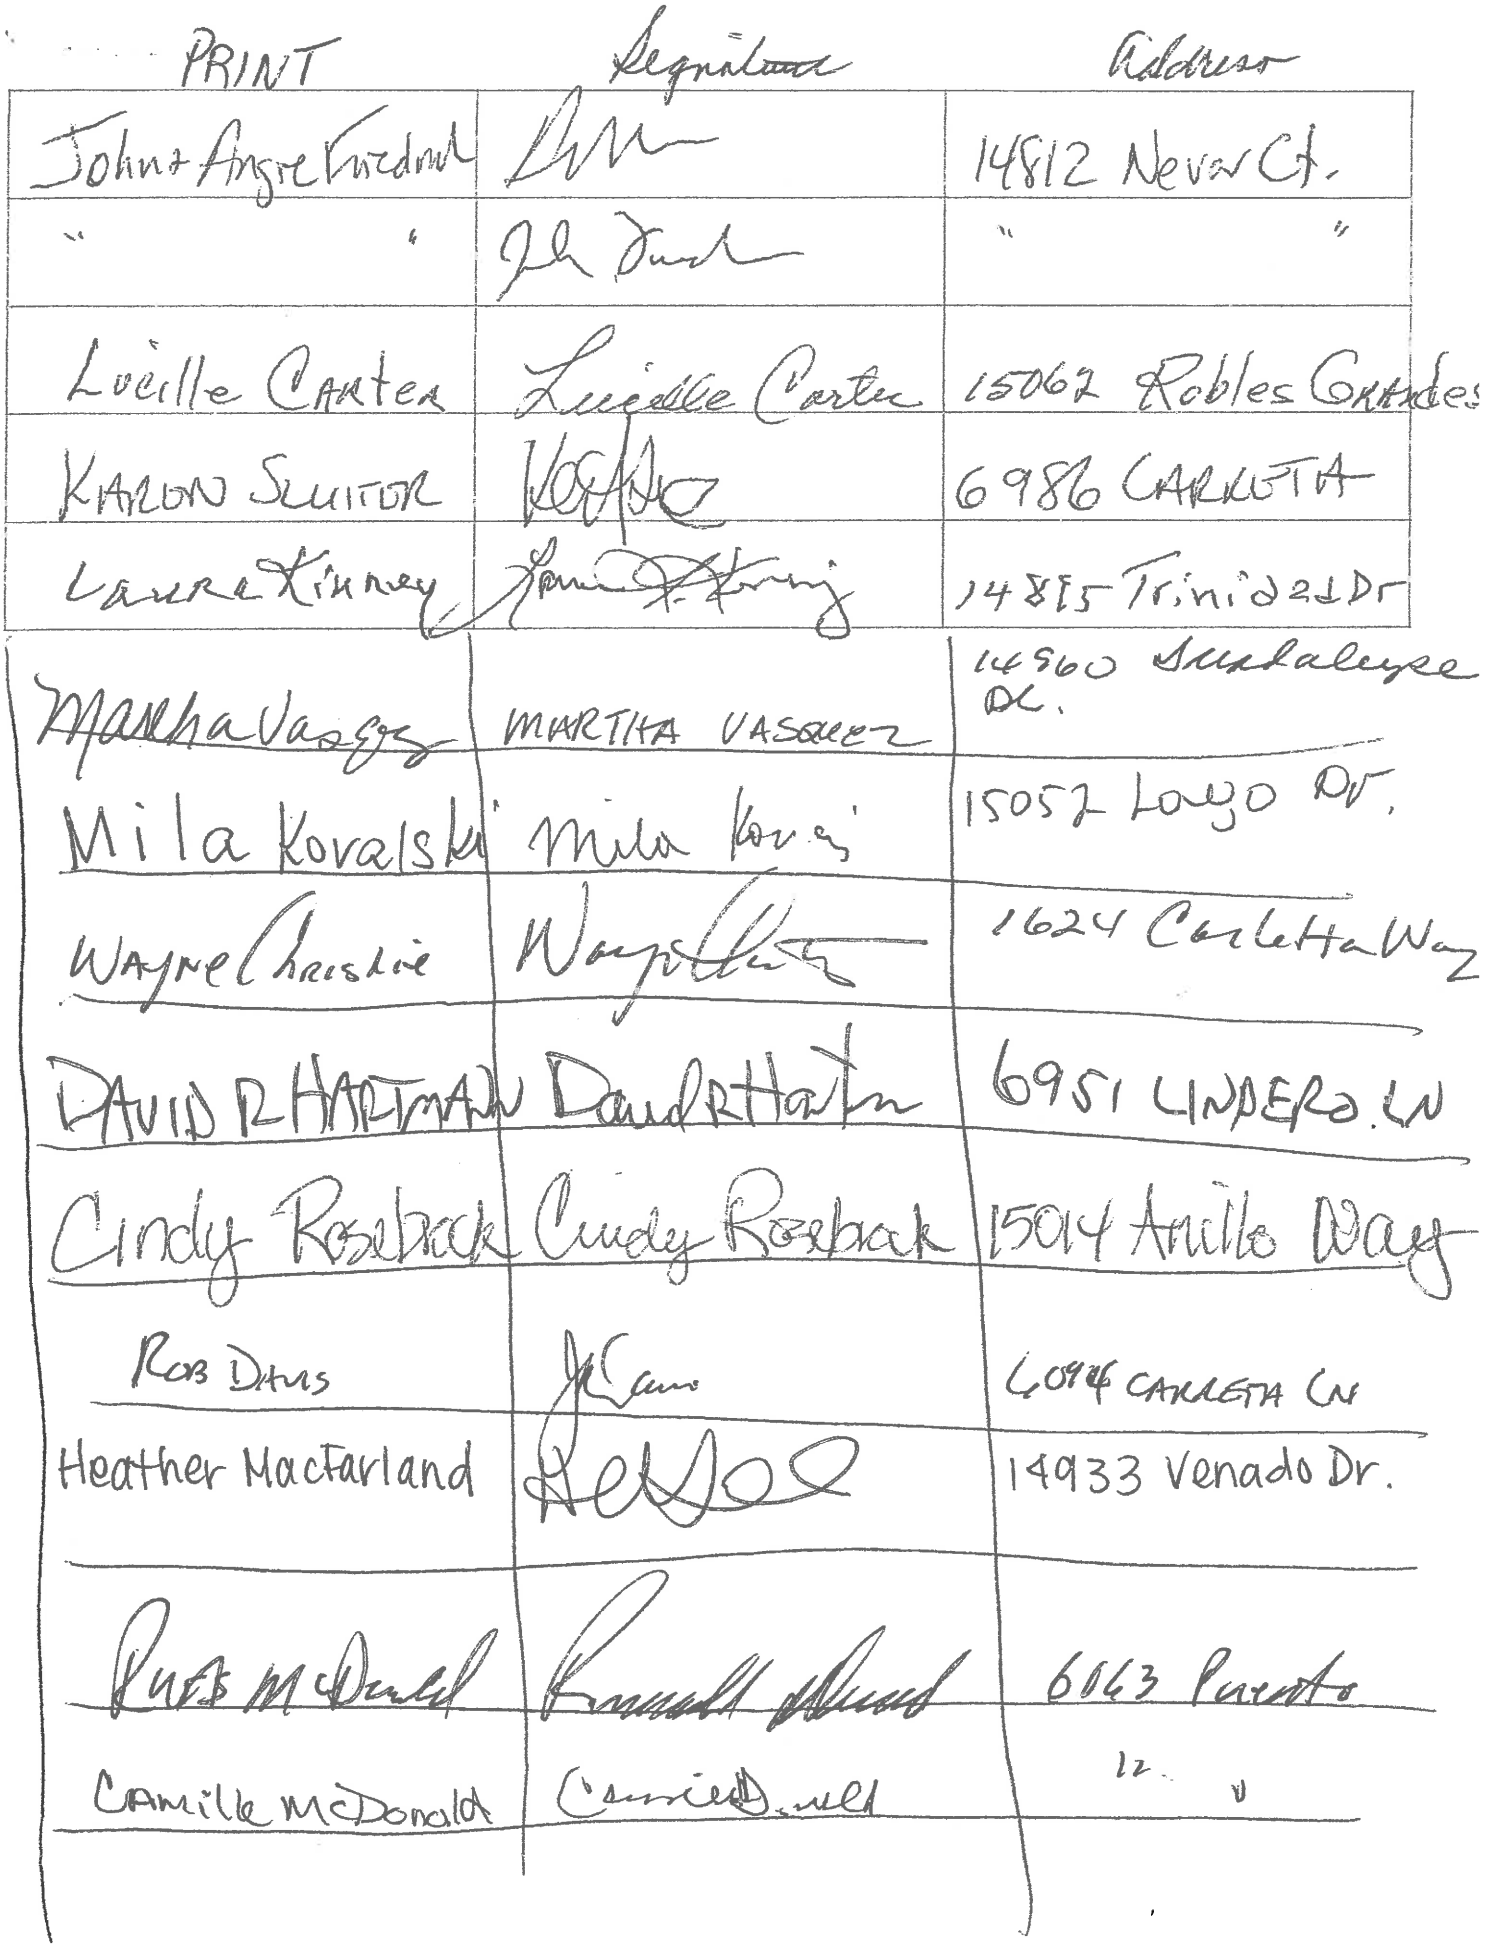 PRINT Signature Address
John + Angie Friedrich 14812 Nevar Ct.
" " " "
Lucille Carter Lucille Carter 15062 Robles Grandes
Karon Sluiter 6986 Carreta
Laura Kinney 14895 Trinidad Dr
14960 Guadalupe
Dr.
Martha Vasquez MARTHA VASQUEZ
Mila Kovalski Mila 15052 Lago Dr.
Wayne Christie Wayne 1624 Carletta Way
DAVID R HARTMANN David R Hartm 6951 LINDERO. LN
Cindy Rosebrock Cindy Rosebrock 15014 Anillo Way
Rob Davis CARRETA LN
Heather MacFarland 14933 Venado Dr.
Russ McDonald 6063 Puerto
Camille McDonald " "